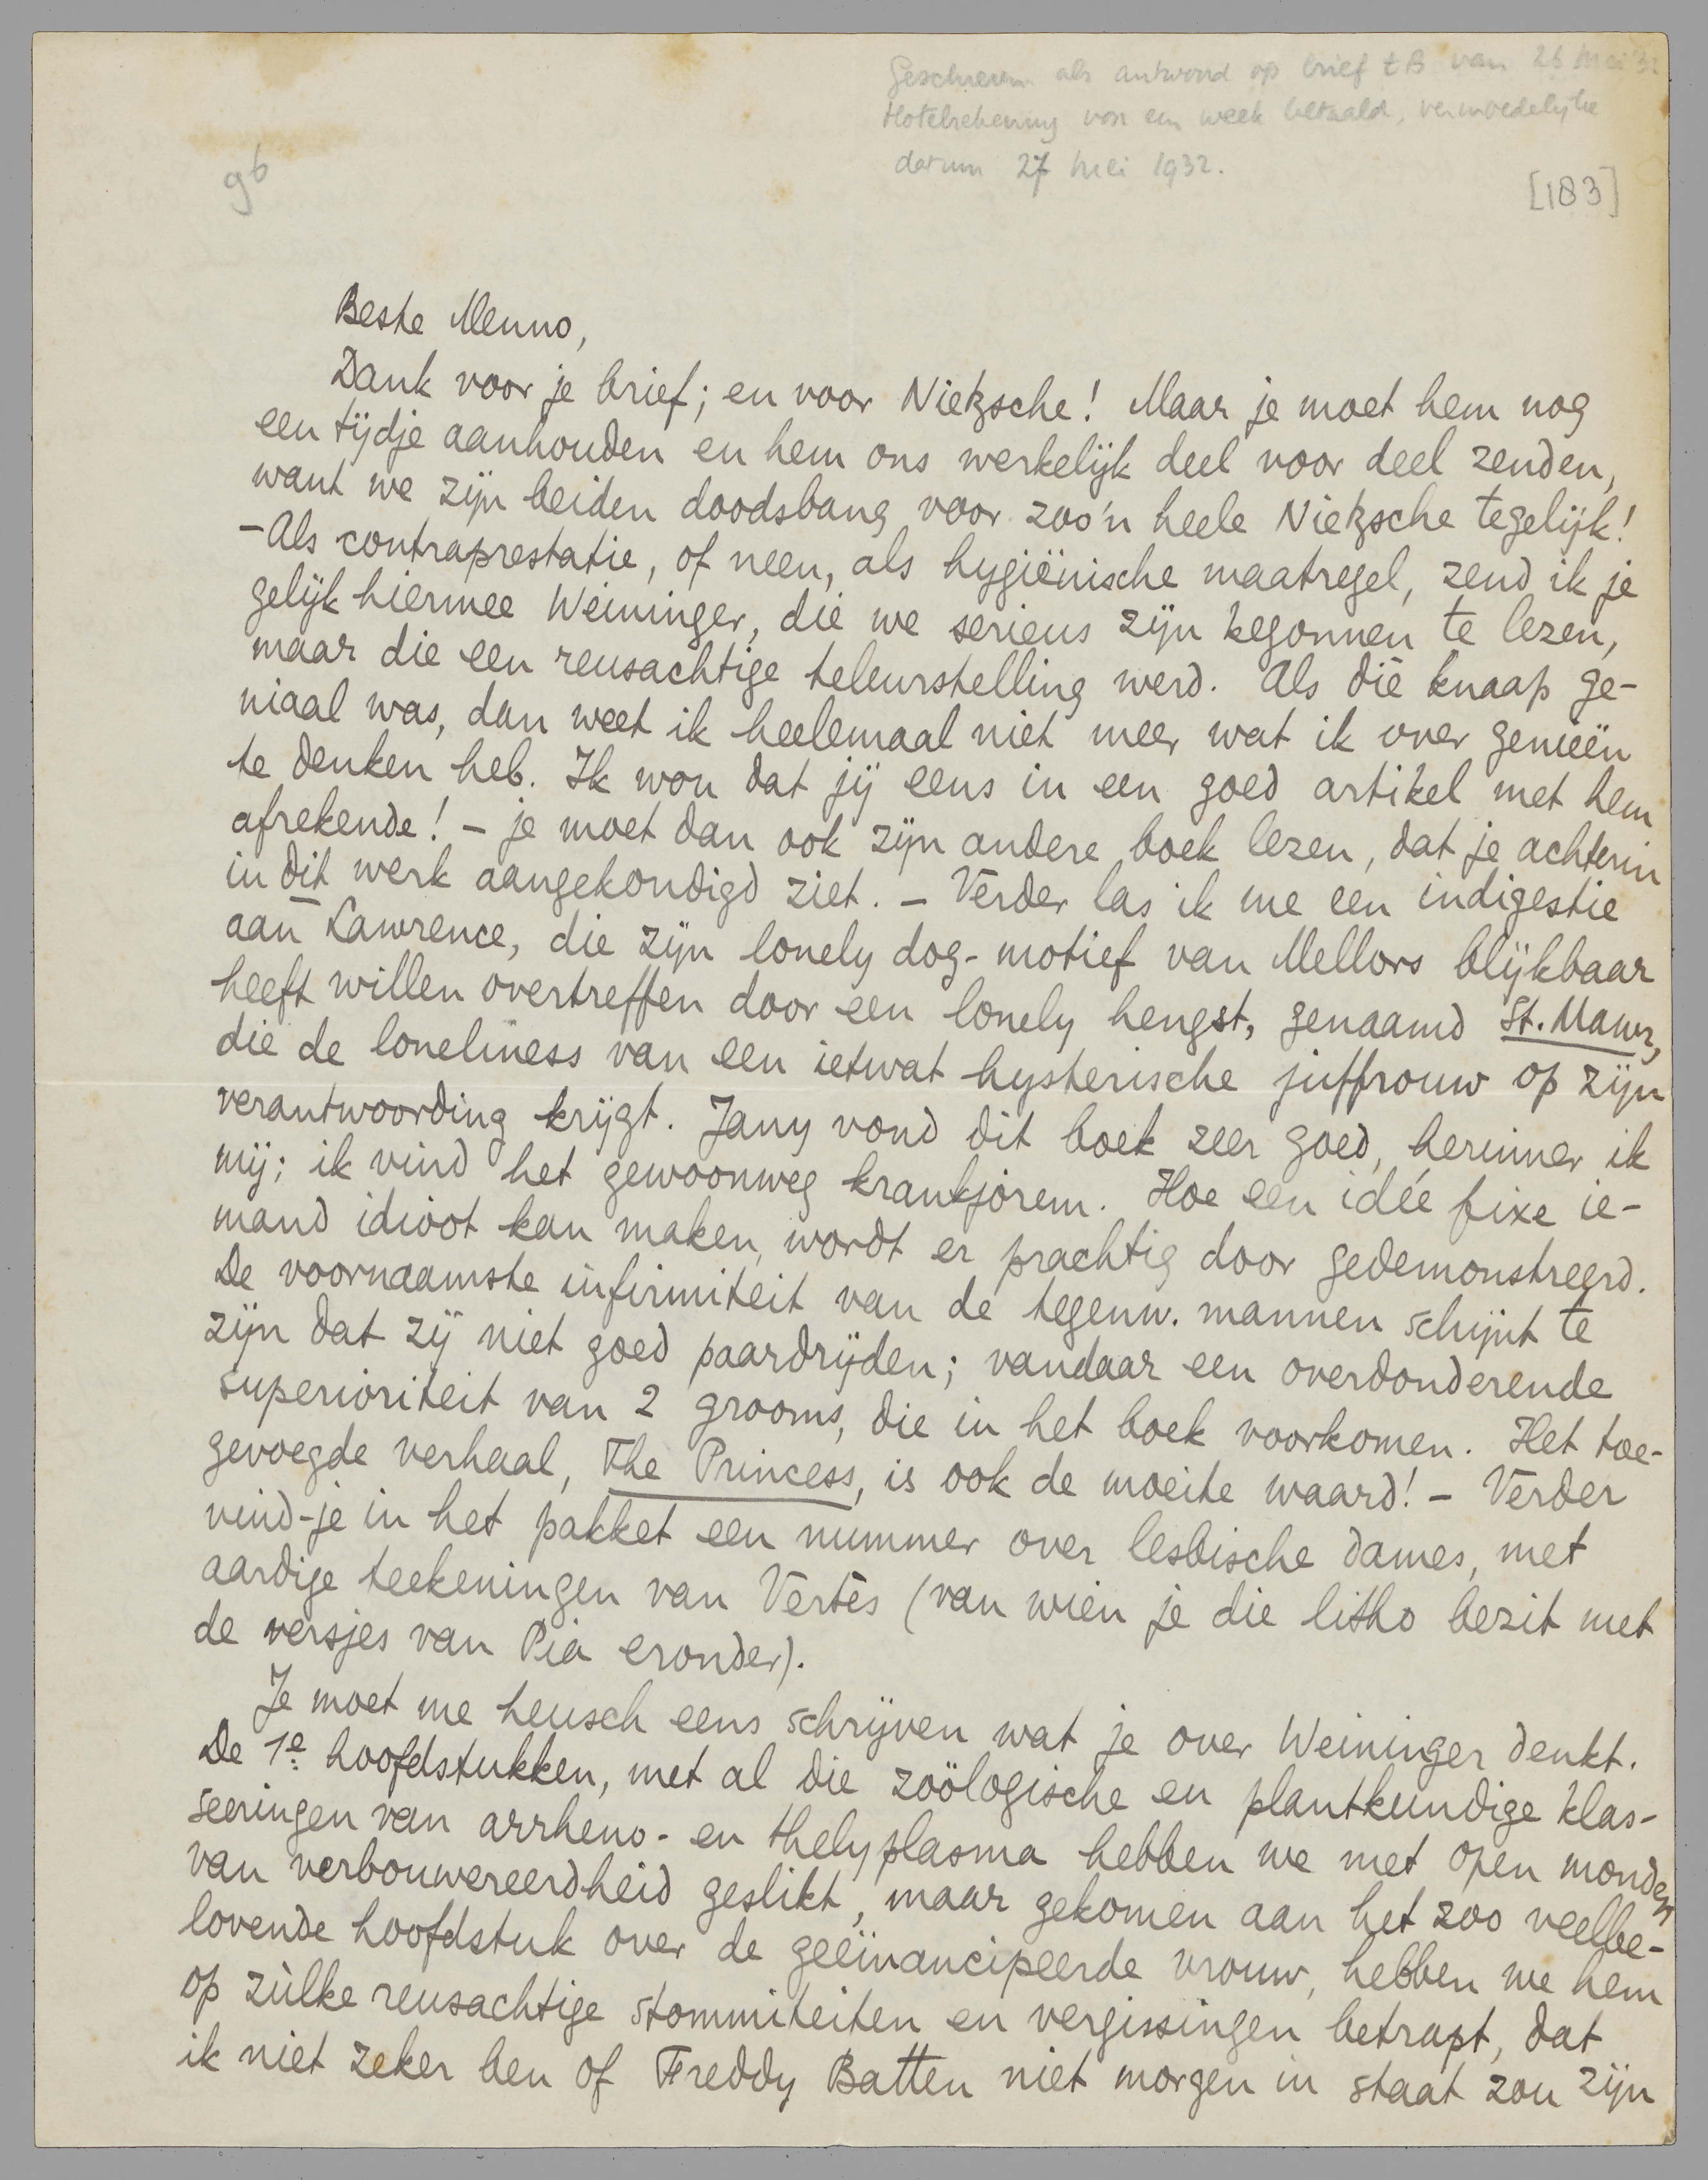 Geschreven als antwoord op brief tB van 26 Mei '32
Hotelrekening von een week betaald, vermoedelijke
datum 27 Mei 1932.
96
[183]
Beste Menno,
Dank voor je brief; en voor Nietzsche! Maar je moet hem nog
een tijdje aanhouden en hem ons werkelijk deel voor deel zenden,
want we zijn beiden doodsbang voor zoo'n heele Nietzsche tegelijk!
– Als contraprestatie, of neen, als hygiënische maatregel, zend ik je
gelijk hiermee Weininger, die we serieus zijn begonnen te lezen,
maar die een reusachtige teleurstelling werd. Als die knaap ge-
niaal was, dan weet ik heelemaal niet meer wat ik over genieën
te denken heb. Ik wou dat jij eens in een goed artikel met hem
afrekende! – je moet dan ook zijn andere boek lezen, dat je achterin
in dit werk aangekondigd ziet. – Verder las ik me een indigestie
aan Lawrence, die zijn lonely dog-motief van Mellors blijkbaar
heeft willen overtreffen door een lonely hengst, genaamd St. Mawr,
die de loneliness van een ietwat hysterische juffrouw op zijn
verantwoording krijgt. Jany vond dit boek zeer goed, herinner ik
mij; ik vind het gewoonweg krankjorem. Hoe een idée fixe ie-
mand idioot kan maken, wordt er prachtig door gedemonstreerd.
De voornaamste infirmiteit van de tegenw. mannen schijnt te
zijn dat zij niet goed paardrijden; vandaar een overdonderende
superioriteit van 2 grooms, die in het boek voorkomen. Het toe-
gevoegde verhaal, The Princess, is ook de moeite waard! – Verder
vind-je in het pakket een nummer over lesbische dames, met
aardige teekeningen van Vertès (van wien je die litho bezit met
de versjes van Pia eronder).
Je moet me heusch eens schrijven wat je over Weininger denkt.
De 1e hoofdstukken, met al die zoölogische en plantkundige klas-
seeringen van arrheno- en thelyplasma hebben we met open monden
van verbouwereerdheid geslikt, maar gekomen aan het zoo veelbe-
lovende hoofdstuk over de geëmancipeerde vrouw, hebben we hem
op zùlke reusachtige stommiteiten en vergissingen betrapt, dat
ik niet zeker ben of Freddy Batten niet morgen in staat zou zijn